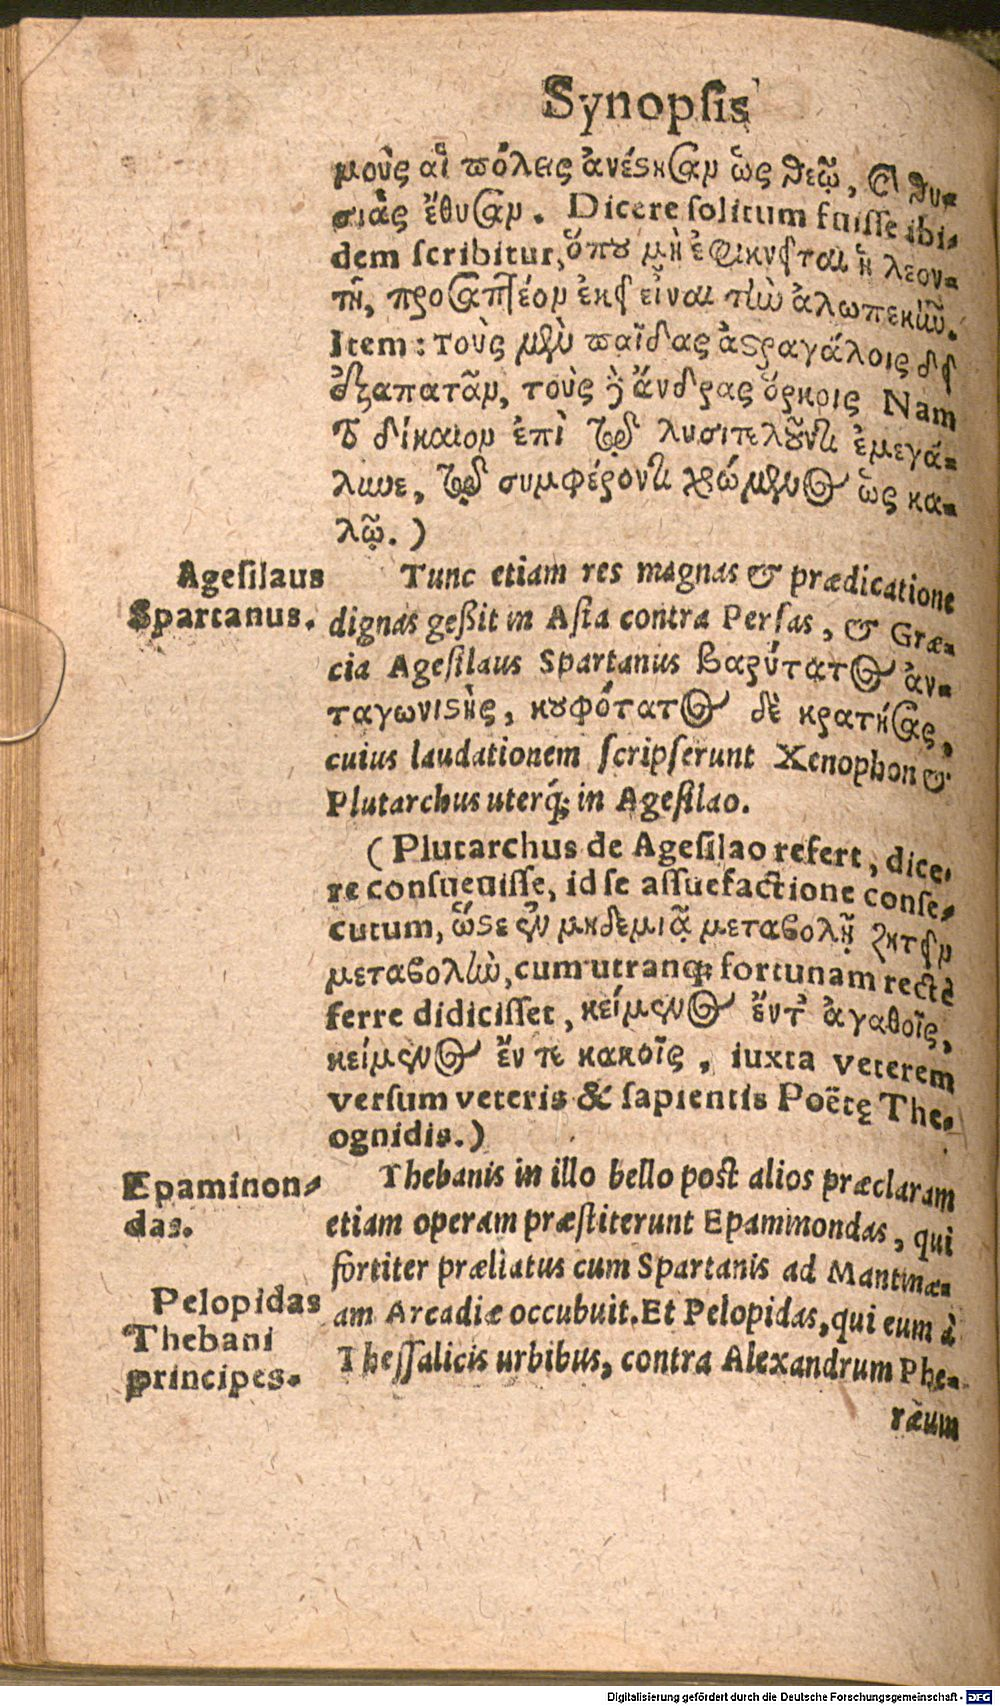 Synopsis
μοὺς αἱ πόλεις ἀνέστησαν ὡς θεῷ, καὶ θυ-
σίας ἔθυσαν. Dicere solitum fuisse ibi-
dem scribitur, ὅπου μὴ ἐφικνεῖται ἡ λεον-
τῆ, προσραπτέον ἐκεῖ εἶναι τὴν ἀλωπεκῆν.
Item: τοὺς μὲν παῖδας ἀστραγάλοις δεῖ
ἐξαπατᾶν, τοὺς δὲ ἄνδρας ὅρκοις Nam
τὸ δίκαιον ἐπὶ τῷ λυσιτελοῦντι ἐμεγά-
λυνε, τῷ συμφέροντι χρώμενος ὡς κα-
λῷ.)
Agesilaus
Spartanus.
Tunc etiam res magnas & prædicatione
dignas geßit in Asia contra Persas, & Græ-
cia Agesilaus Spartanus βαρύτατος ἀν-
ταγωνιστὴς, κουφότατος δὲ κρατήσας,
cuius laudationem scripserunt Xenophon &
Plutarchus uterq́; in Agesilao.
(Plutarchus de Agesilao refert, dice-
re consuevisse, id se assuefactione conse-
cutum, ὥστε ἐν μηδεμιᾷ μεταβολῇ ζητεῖν
μεταβολὴν, cum utranq; fortunam rectè
ferre didicisset, κείμενος ἔν τ' ἀγαθοῖς,
κείμενος ἔν τε κακοῖς, iuxta veterem
versum veteris & sapientis Poëtę The-
ognidis.)
Epaminon-
das.
Thebanis in illo bello post alios præclaram
etiam operam præstiterunt Epaminondas, qui
fortiter præliatus cum Spartanis ad Mantinæ-
am Arcadiæ occubuit. Et Pelopidas, qui eum à
Thessalicis urbibus, contra Alexandrum Phe-
Pelopidas
Thebani
principes.
ræum
Digitalisierung gefördert durch die Deutsche Forschungsgemeinschaft - DFG